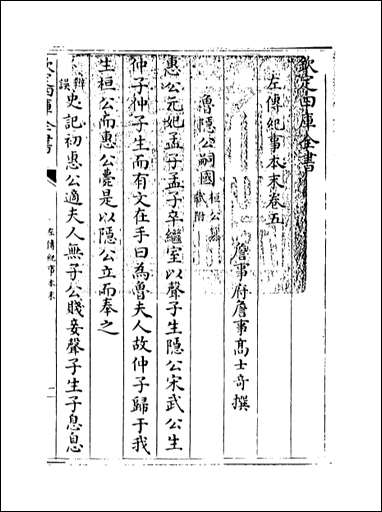 欽定四庫全書
左傳紀事本末卷五
詹事府詹事高士奇撰
魯隱公嗣國桓公篡弒附
惠公元妃孟子孟子卒繼室以聲子生隱公宋武公生
仲子仲子生而有文在手曰為魯夫人故仲子歸于我
生桓公而惠公薨是以隱公立而奉之
辨誤史記初惠公適夫人無子公賤妾聲子生子息息
欽定四庫全書
左傳紀事本末
一